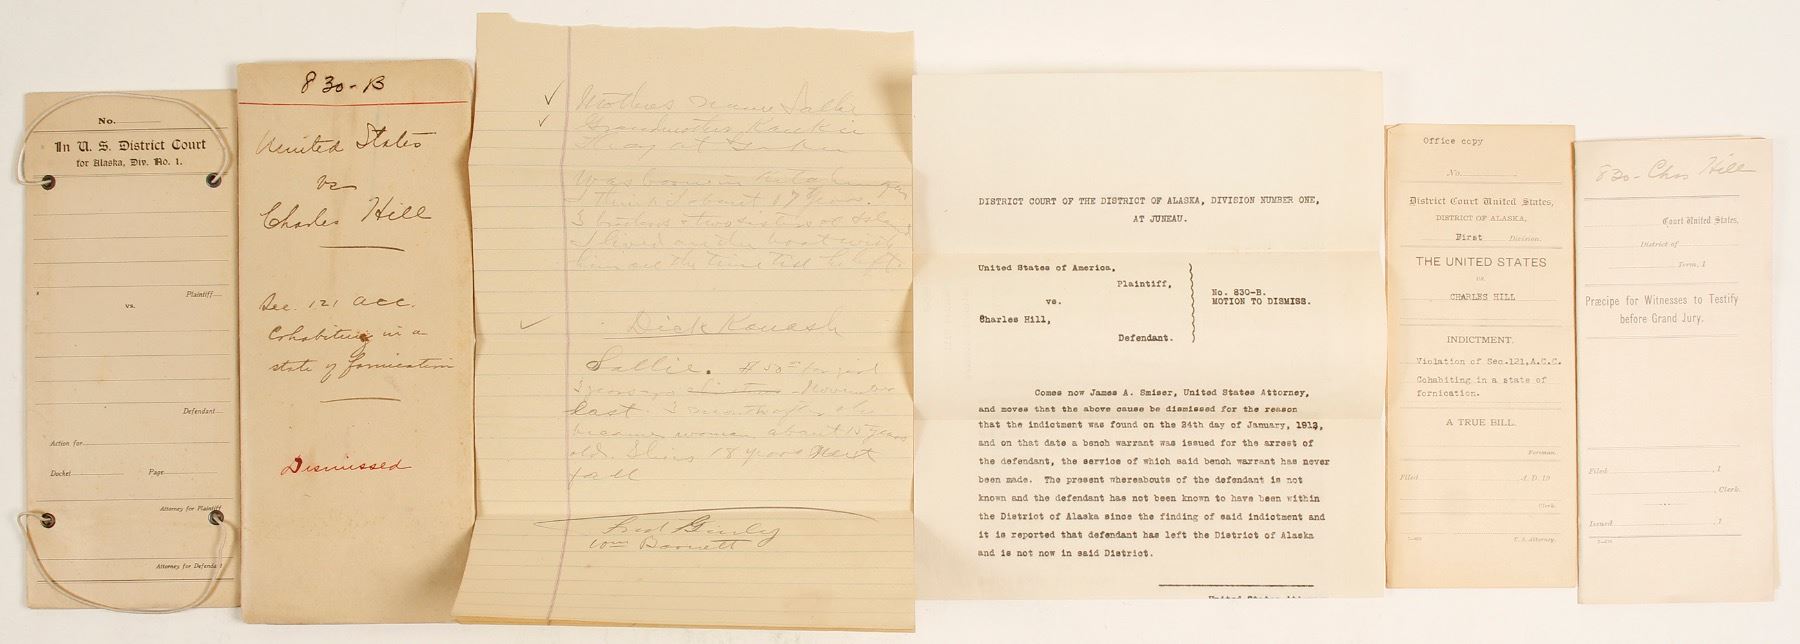 No.
In U. S. District Court
for Alaska, Div. No. 1.
Plaintiff
vs.
Defendant
Action for
Docket Page
Attorney for Plaintiff
Attorney for Defenda
830-B
United States
vs
Charles Hill
Sec. 121 acc.
Cohabiting in a
state of fornication
Dismissed
Mothers name Sallie
Grandmother
at
Was born in
I think I about 17 years.
3 brothers & two sisters
I lived on the boat with
him all the time till he left.
Dick
Sallie. $50 for girl
3 years November
last 3 months she
became woman about 15 years
old. She is 18 years next
fall
Fred
Wm Barnett
DISTRICT COURT OF THE DISTRICT OF ALASKA, DIVISION NUMBER ONE,
AT JUNEAU.
United States of America,
Plaintiff,
vs.
Charles Hill,
Defendant.
No. 830-B.
MOTION TO DISMISS.
Comes now James A. Smiser, United States Attorney,
and moves that the above cause be dismissed for the reason
that the indictment was found on the 24th day of January, 1913,
and on that date a bench warrant was issued for the arrest of
the defendant, the service of which said bench warrant has never
been made. The present whereabouts of the defendant is not
known and the defendant has not been known to have been within
the District of Alaska since the finding of said indictment and
it is reported that defendant has left the District of Alaska
and is not now in said District.
Office copy
No.
District Court United States,
DISTRICT OF ALASKA,
First Division.
THE UNITED STATES
vs.
CHARLES HILL
INDICTMENT.
Violation of Sec.121,A.C.C.
Cohabiting in a state of
fornication.
A TRUE BILL.
Foreman.
Filed A. D. 19
Clerk.
U. S. Attorney.
830- Chas Hill
Court United States,
District of
Term, 1
Præcipe for Witnesses to Testify
before Grand Jury.
Filed , 1
, Clerk.
Issued , 1